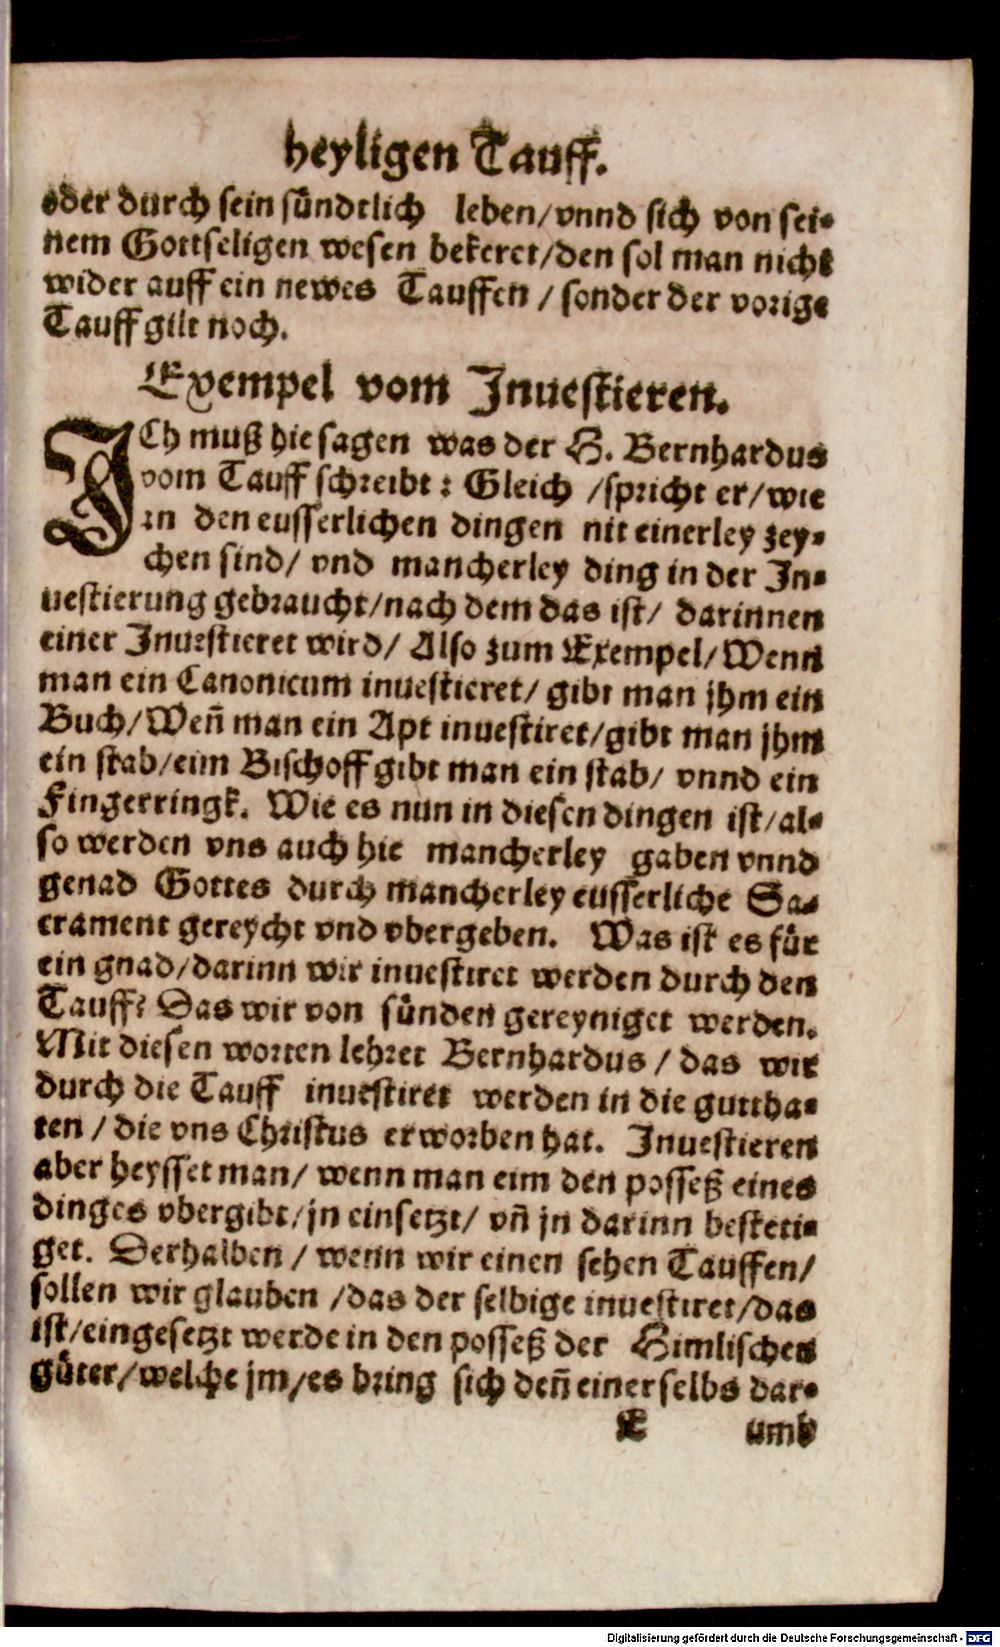 heyligen Tauff.
oder durch sein sündtlich leben/vnnd sich von sei-
nem Gottseligen wesen bekeret/den sol man nicht
wider auff ein newes Tauffen / sonder der vorige
Tauff gilt noch.
Exempel vom Inuestieren.
ICh muß hie sagen was der H. Bernhardus
vom Tauff schreibt: Gleich /spricht er/wie
in den eusserlichen dingen nit einerley zey-
chen sind/ vnd mancherley ding in der In-
uestierung gebraucht/nach dem das ist/ darinnen
einer Inuestieret wird/ Also zum Exempel/Wenn
man ein Canonicum inuestieret/ gibt man jhm ein
Buch/Weñ man ein Apt inuestiret/gibt man jhm
ein stab/eim Bischoff gibt man ein stab/ vnnd ein
Fingerringk. Wie es nun in diesen dingen ist/al-
so werden vns auch hie mancherley gaben vnnd
genad Gottes durch mancherley eusserliche Sa-
crament gereycht vnd vbergeben. Was ist es für
ein gnad/darinn wir inuestiret werden durch den
Tauff? Das wir von sünden gereyniget werden.
Mit diesen worten lehret Bernhardus / das wir
durch die Tauff inuestiret werden in die guttha-
ten / die vns Christus erworben hat. Inuestieren
aber heysset man/ wenn man eim den posseß eines
dinges vbergibt/jn einsetzt/ vñ jn darinn besteti-
get. Derhalben / wenn wir einen sehen Tauffen/
sollen wir glauben /das der selbige inuestiret/das
ist/eingesetzt werde in den posseß der Himlischen
güter/welche jm/es bring sich deñ einer selbs dar-
E umb
Digitalisierung gefördert durch die Deutsche Forschungsgemeinschaft - DFG